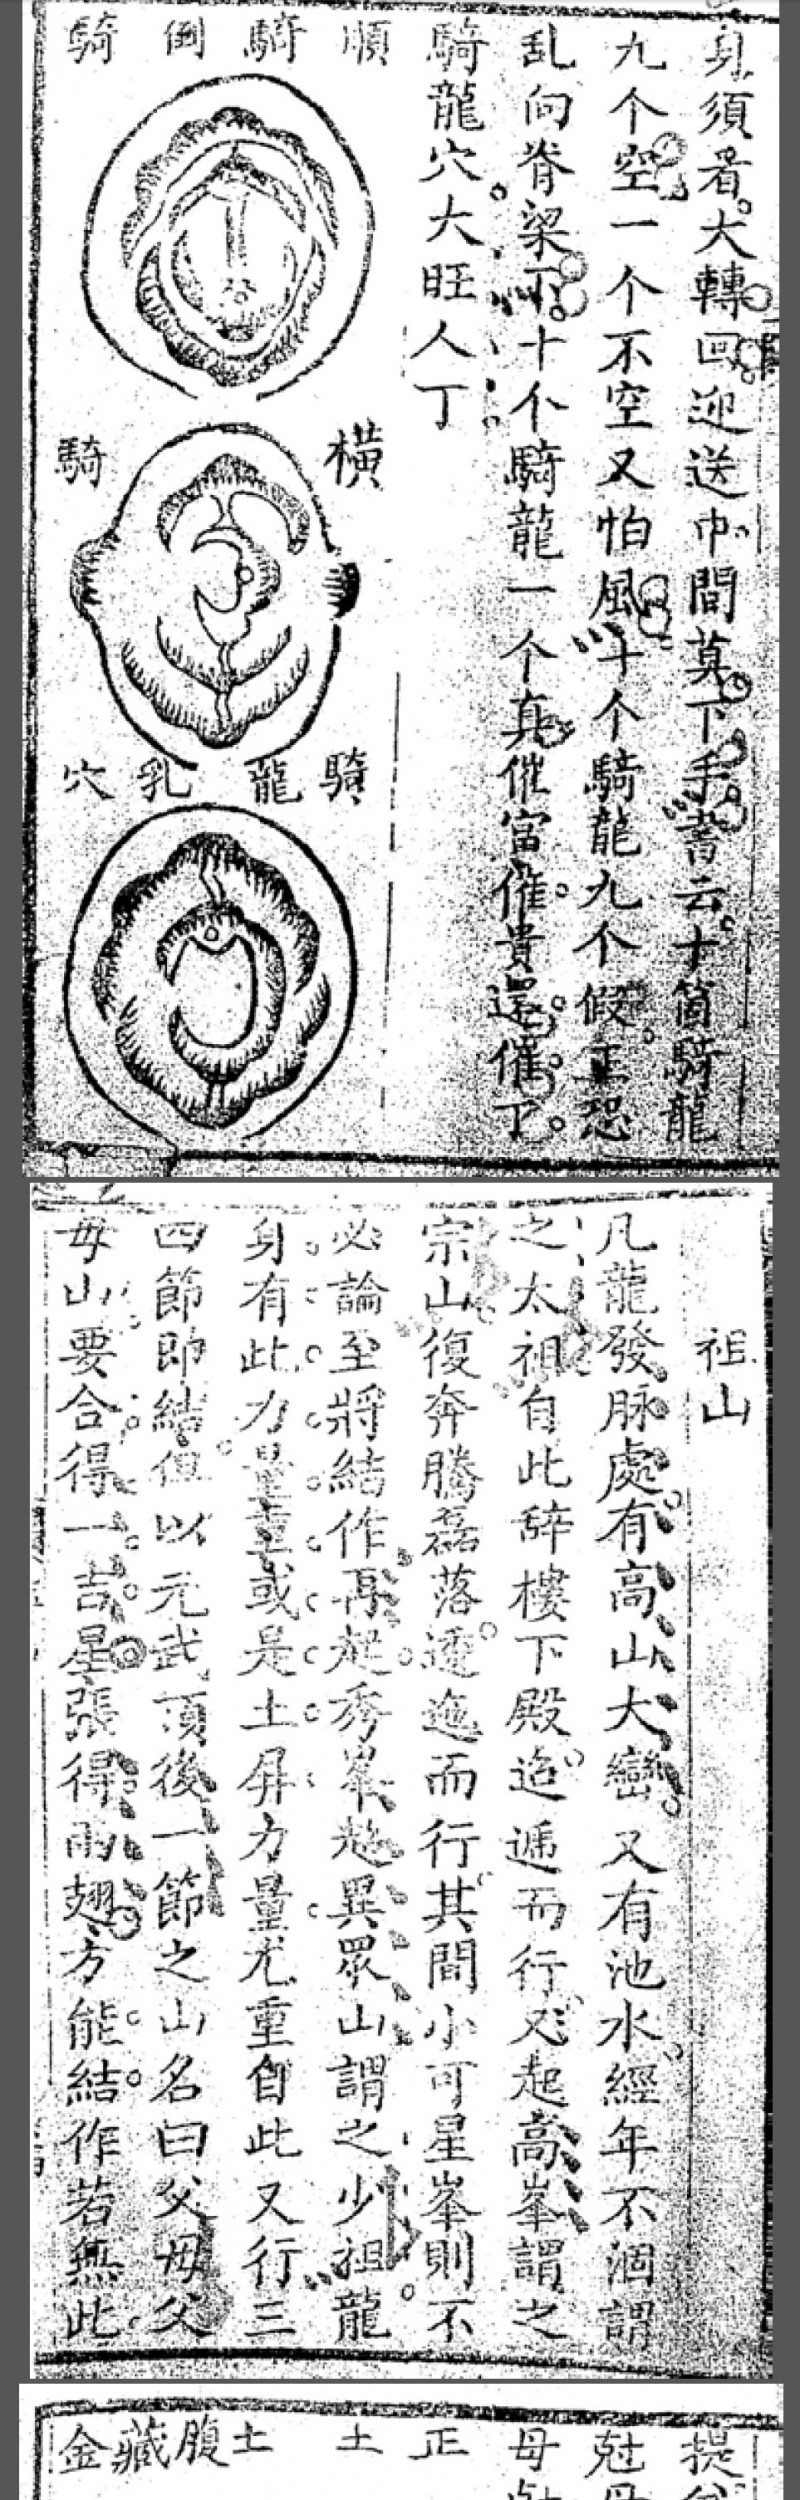 身須看大轉回迎送中間莫下手書云十箇騎龍
九个空一个不空又怕風十个騎龍九个假正恐
乱向脊梁下十个騎龍一个真催富催貴還催丁
騎龍穴大旺人丁
順騎 倒騎
橫騎
騎龍乳穴
祖山
凡龍發脉處有高山大巒又有池水經年不涸謂
之太祖自此辞樓下殿迨逓而行又起高峯謂之
宗山復奔騰磊落逶迤而行其間小可星峯則不
必論至將結作再起秀峯越異眾山謂之少祖龍
身有此力量重或是土屏力量尤重自此又行三
四節即結但以元武頂後一節之山名曰父母父
母山要合得一吉星張得兩翅方能結作若無此
提
尅母
母
正
土
土
腹藏金